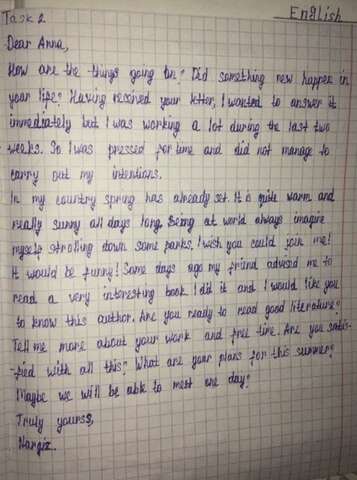 Task 2
English
Dear Anna,
How are the things going on? Did something new happen in
your life? Having received your letter, I wanted to answer it
immediately but I was working a lot during the last two
weeks. So I was pressed for time and did not manage to
carry out my intentions.
In my country spring has already set. It is quite warm and
really sunny all days long. Being at world always imagine
myself strolling down some parks, I wish you could join me!
It would be funny! Some days ago my friend advised me to
read a very interesting book I did it and I would like you
to know this author. Are you ready to read good literature?
Tell me more about your work and free time. Are you satis-
-fied with all this? What are your plans for this summer?
Maybe we will be able to meet one day?
Truly yours,
Nargiz.